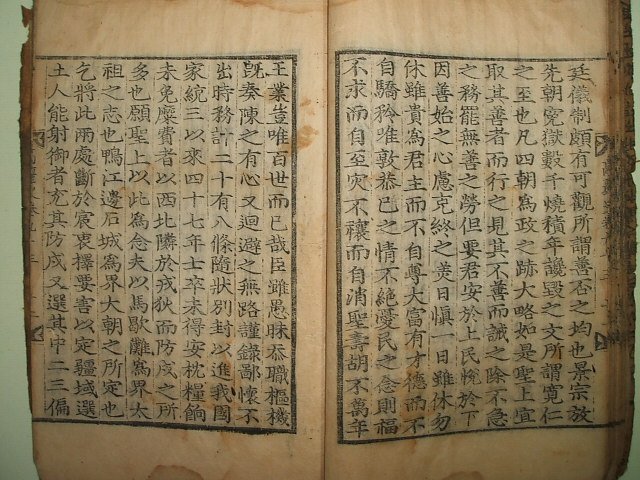 廷儀制頗有可觀所謂善否之均也景宗放
先朝寃獄數千燒積年讒毀之文所謂寬仁
之至也凡四朝爲政之跡大略如是聖上宜
取其善者而行之見其不善而誡之除不急
之務罷無益之勞但要君安於上民悅於下
因善始之心慮克終之美日慎一日雖休勿
休雖貴爲君主而不自尊大富有才德而不
自驕矜唯敦恭己之情不絶愛民之念則福
不求而自至灾不禳而自消聖壽胡不萬年
王業豈唯百世而已哉臣雖愚昧忝職樞機
旣奏陳之有心又迴避之無路謹錄鄙懷不
出時務計二十有八條隨狀別封以進我國
家統三以來四十七年士卒未得安枕糧餉
未免糜費者以西北隣於戎狄而防戍之所
多也願聖上以此爲念夫以馬歇灘爲界太
祖之志也鴨江邊石城爲界大朝之所定也
乞將此兩處斷於宸衷擇要害以定疆域選
土人能射御者充其防戍又選其中二三偏